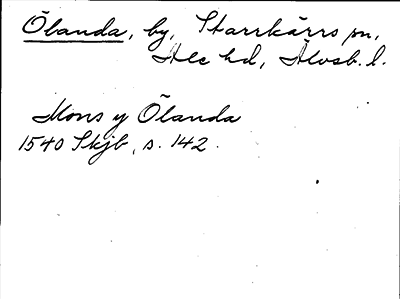 Ölanda, by, Starrkärrs sn,
Ale hd, Älvsb. l.
Mons y Ölanda
1540 Skjb, s. 142.